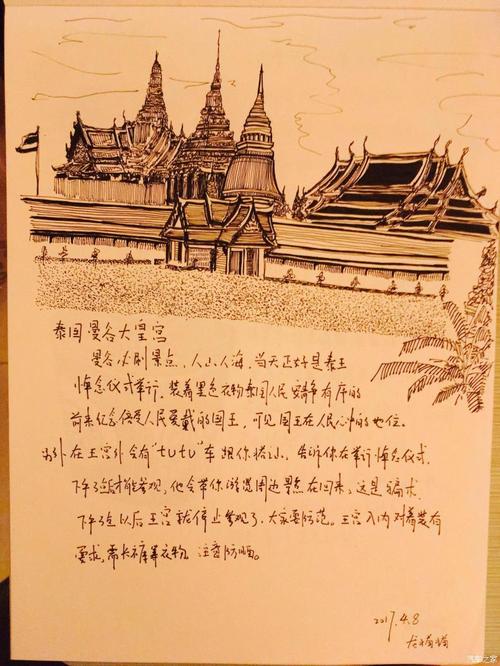 泰国曼谷大皇宫
曼谷必刷景点，人山人海，当天正好是泰王
悼念仪式举行，装着黑色衣物泰国人民安静有序的
前来纪念倍受人民爱戴的国王，可见国王在人民心中的地位。
另外在王宫外会有"tutu"车跟你搭讪，告诉你在举行悼念仪式，
下午3点才能参观，他会带你游览周边景点在回来，这是骗术
下午3点以后王宫就停止参观了，大家要防范。王宫入内对着装有
要求，需长裤等衣物，注意防晒。
2017.4.8
汽车之家